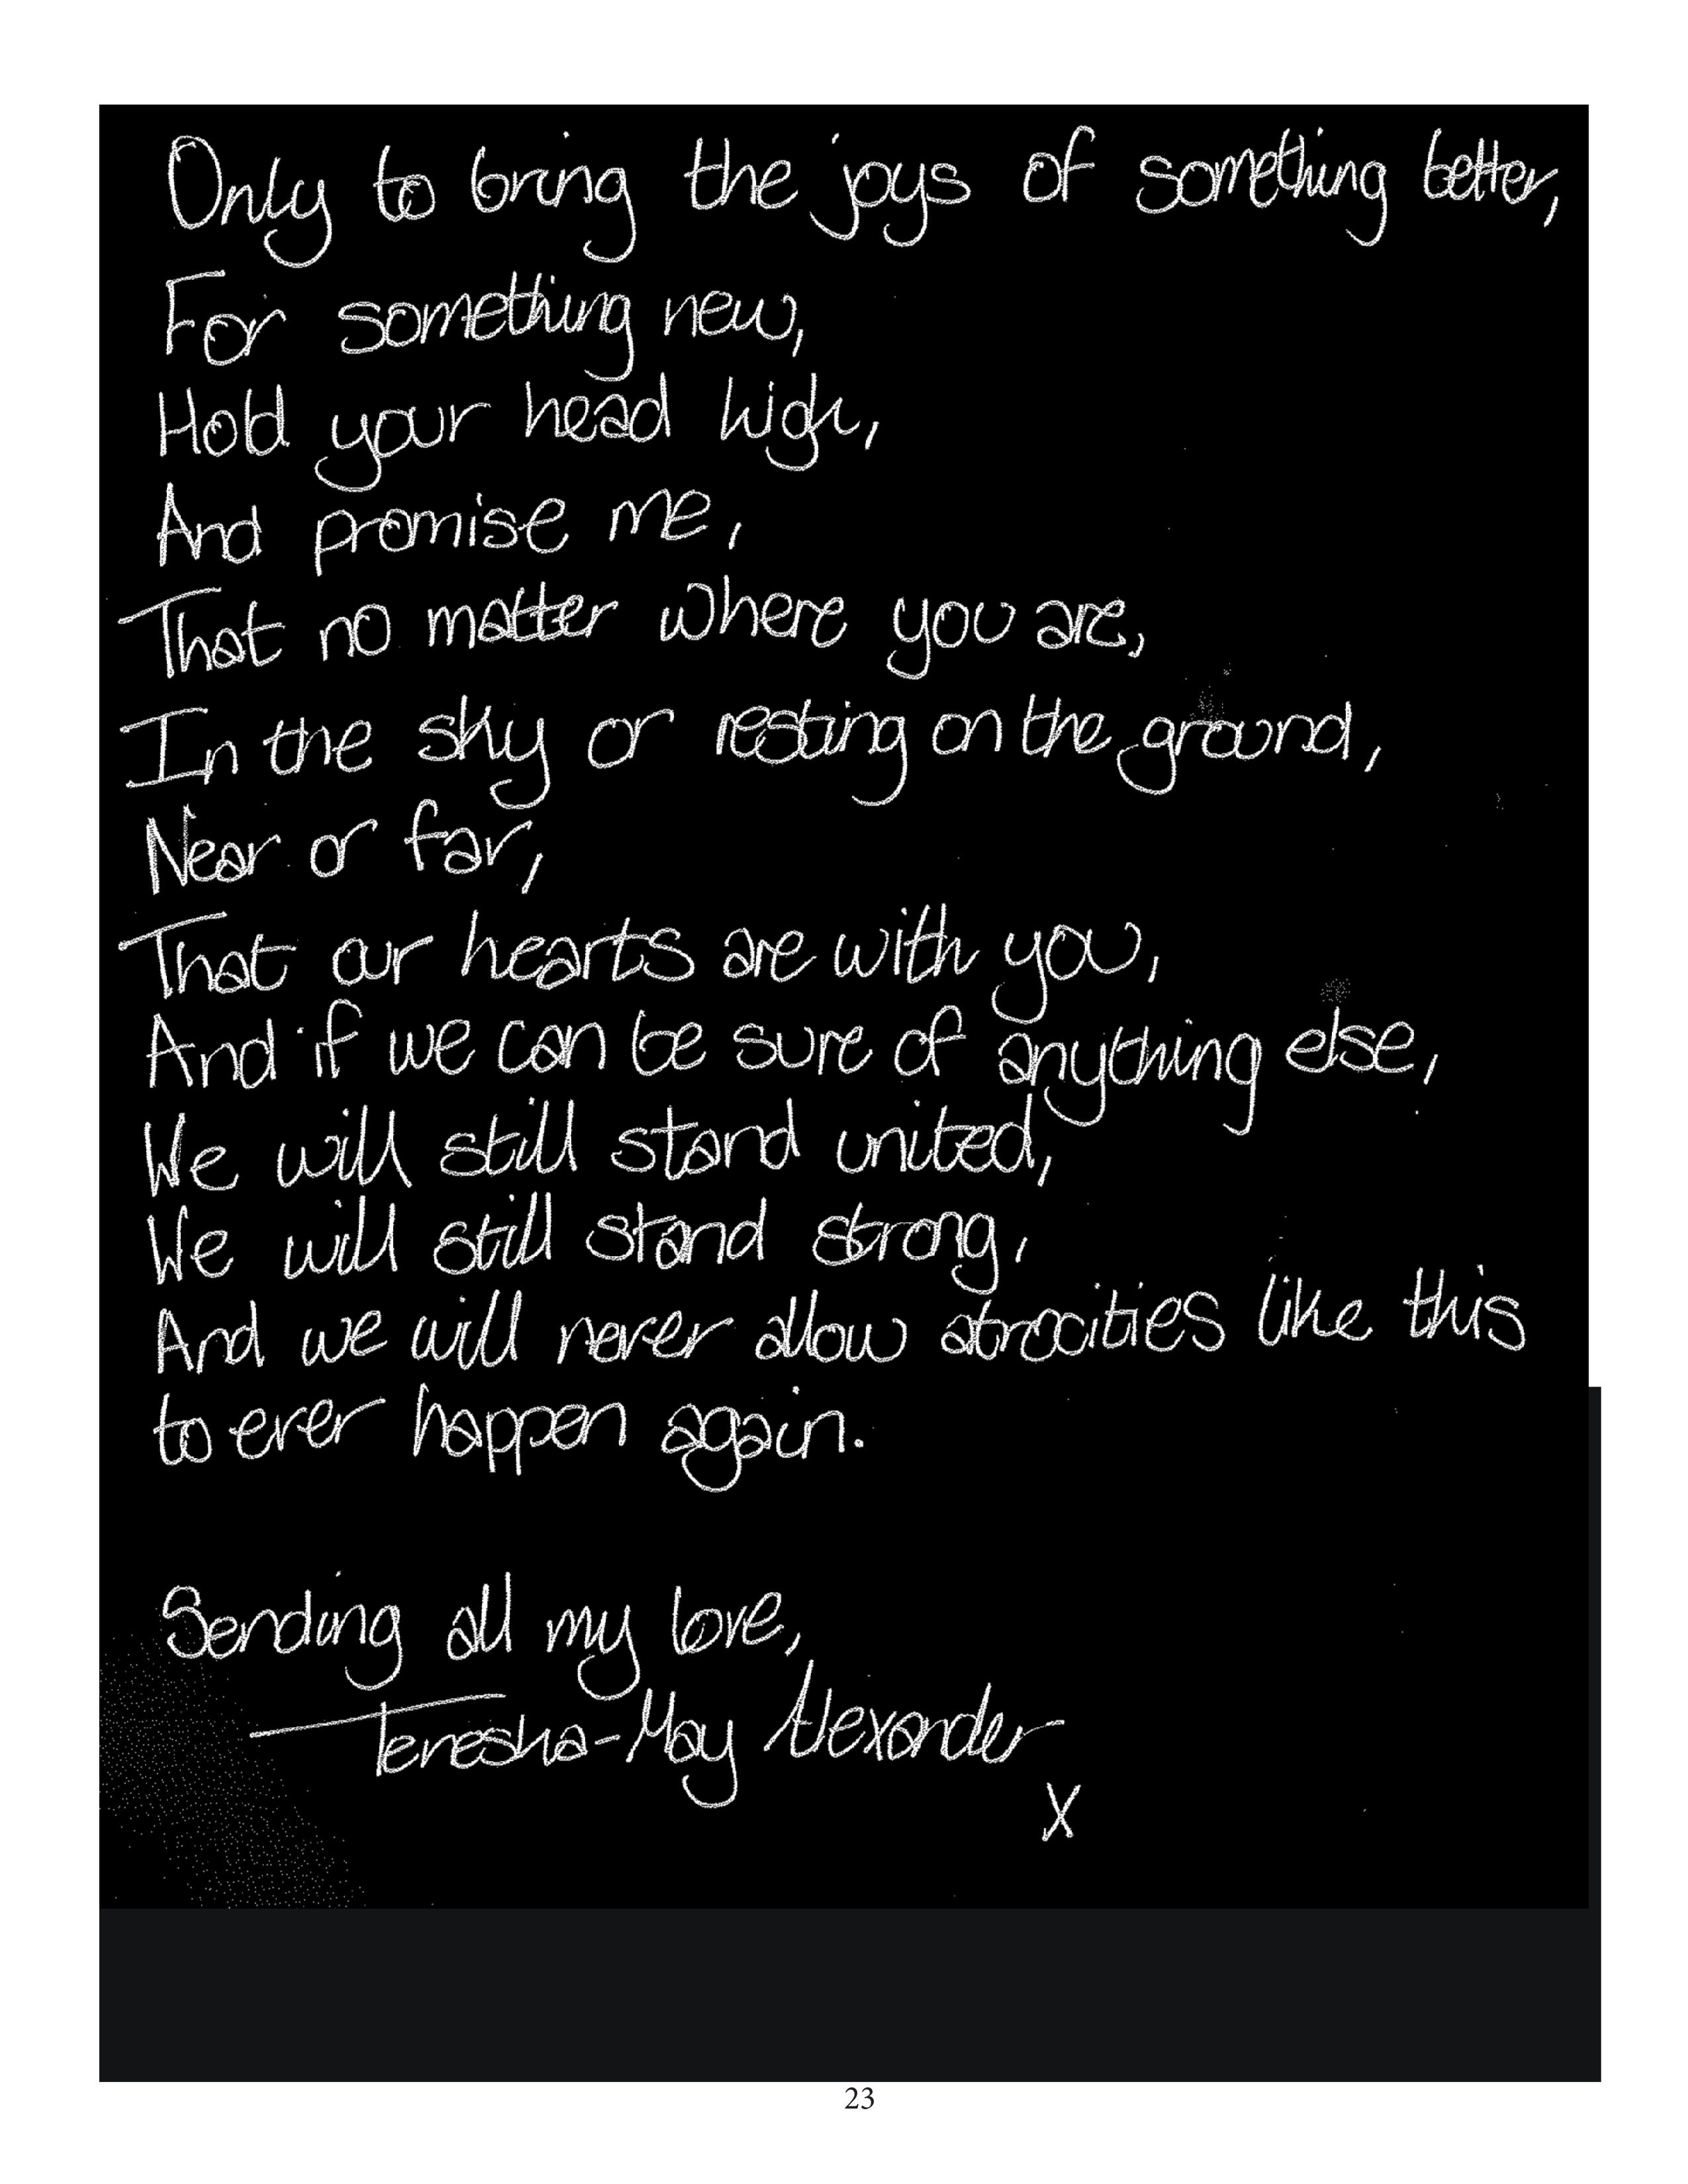 Only to bring the joys of something better,
For something new,
Hold your head high,
And promise me,
That no matter where you are,
In the sky or resting on the ground,
Near or far,
That our hearts are with you,
And if we can be sure of anything else,
We will still stand united,
We will still stand strong,
And we will never allow atrocities like this
to ever happen again.
Sending all my love,
Teresha-May Alexander
X
23